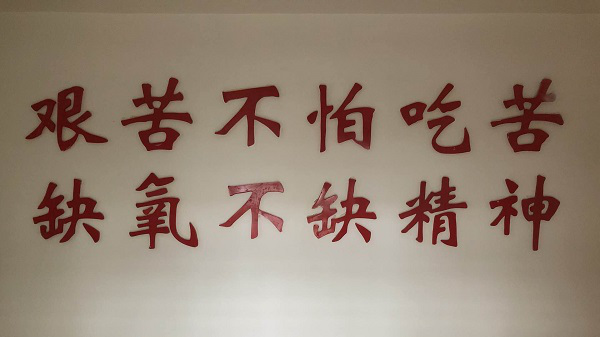 艰苦不怕吃苦
缺氧不缺精神